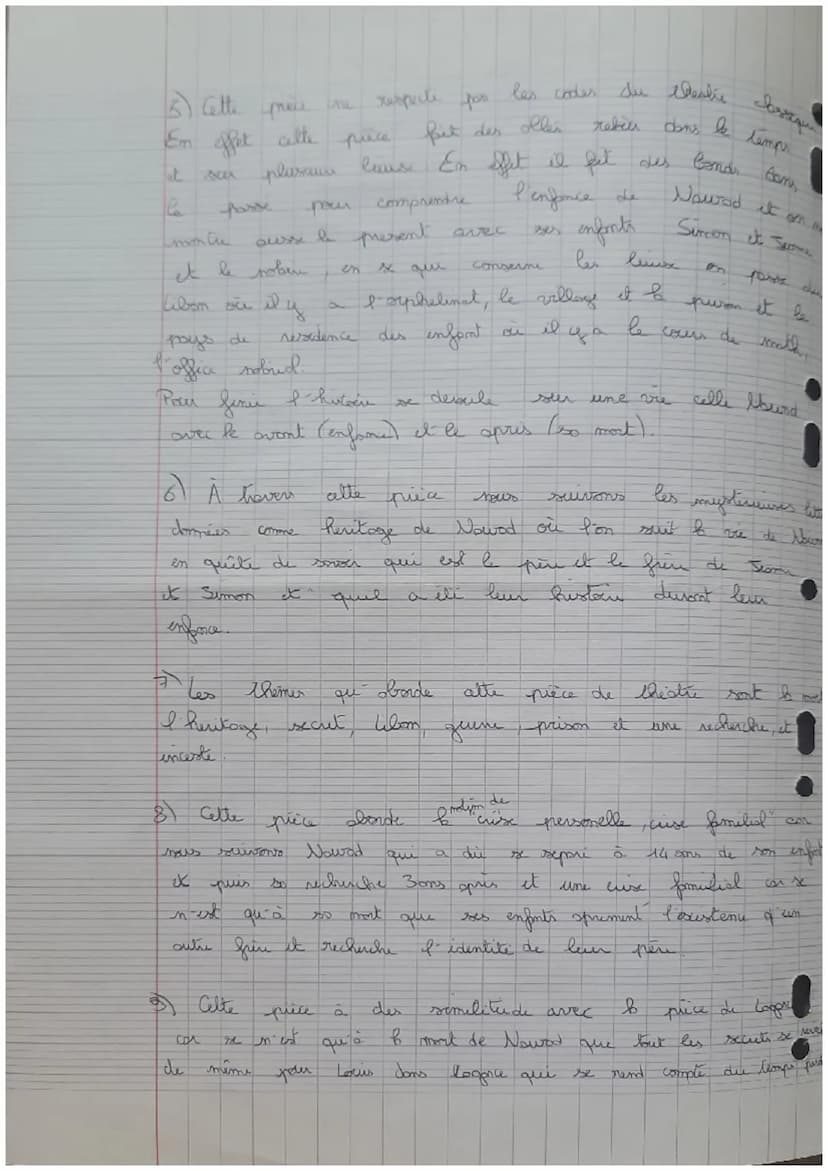 5) Cette pièce ne respecte pas les codes du théatre classique
En effet cette pièce fait des aller retour dans le temps
et sur plusieurs lieux. En effet il fait des bonds dans
le passé pour comprendre l'enfance de Nawad et on
montre aussi le present avec ses enfants Simon et Jeanne
et le notaire, en se qui conserne les lieux on passe du
Liban où il y a l'orphelinat, le village et la prison et le
pays de residence des enfant où il y a le cours de math,
l'office
Pour finir l'histoire se deroule sur une vie celle Nawad
avec le avant (enfance) et le apres (sa mort).
6) À travers cette pièce nous suivons les mysterieuses
données comme heritage de Nawad où l'on suit la vie de
en quête de savoir qui est le père et le frère de Jeanne
et Simon et quel a été leur histoire durant leur
enfance.
7) Les thèmes qu'aborde cette pièce de théatre sont la
l'heritage, secret, Liban, guerre, prison et une recherche, et
inceste.
8) Cette pièce aborde la notion de "crise personelle, crise familial" car
nous suivons Nawad qui a dû se séparé à 14 ans de son enfant
et puis sa recherche 3ans après et une crise familial car se
n'est qu'à sa mort que ses enfants aprennent l'existence d'un
autre frère et recherche l'identité de leur père
9) Cette pièce à des similitude avec la pièce de Lagarce
car se n'est qu'à la mort de Nawad que tout les secrets se
de même pour Louis dans Lagarce qui se rend compte du temps